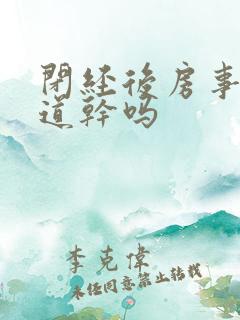 閉經後房事
道幹吗
李克偉
未经同意禁止转载